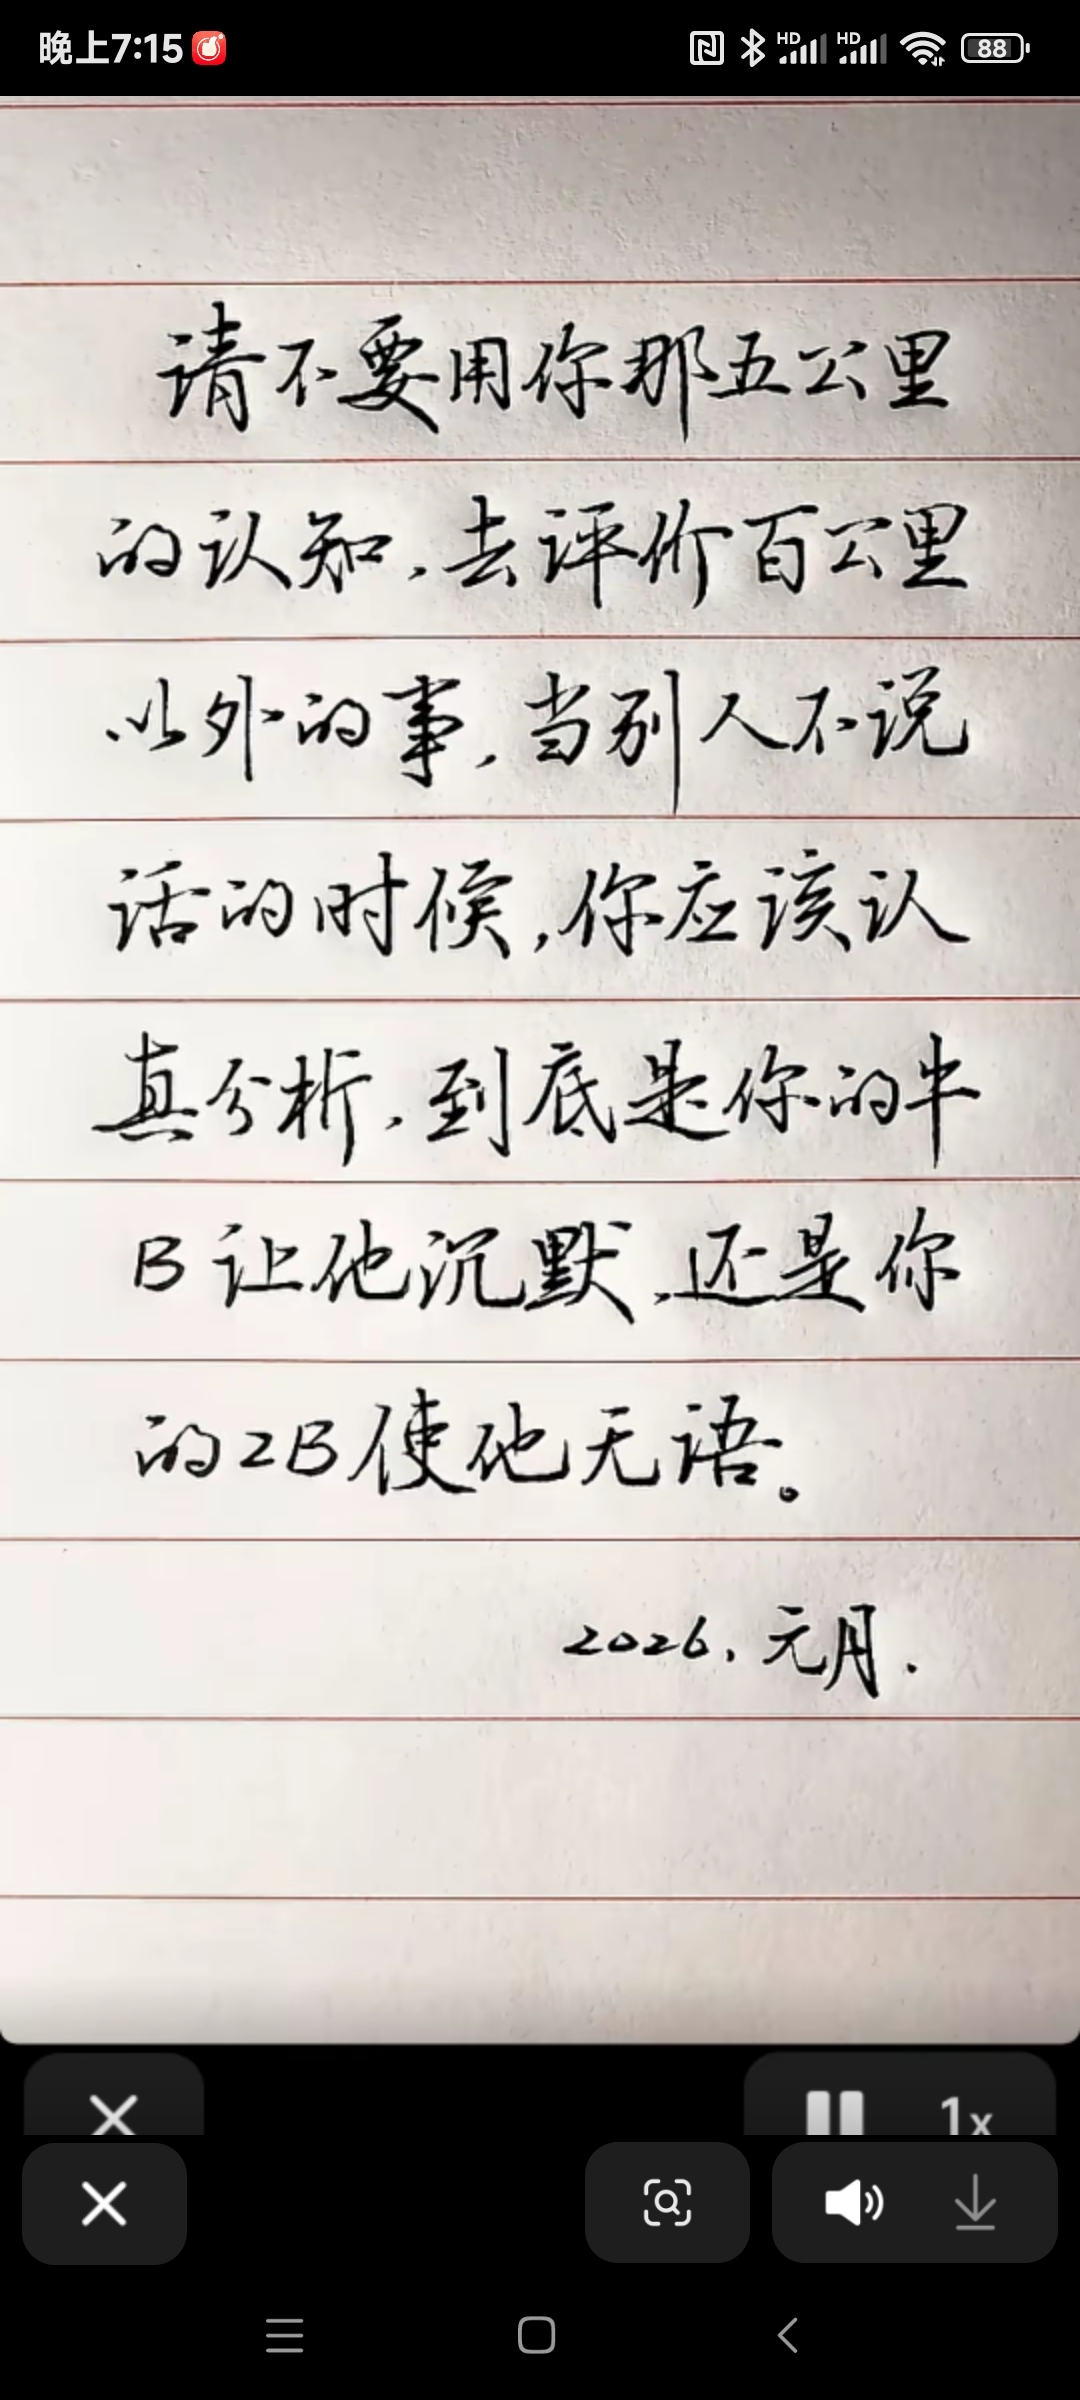 晚上7:15
HD HD 88
请不要用你那五公里
的认知,去评价百公里
以外的事,当别人不说
话的时候,你应该认
真分析,到底是你的牛
B让他沉默,还是你
的2B使他无语。
2026,元月.
1x